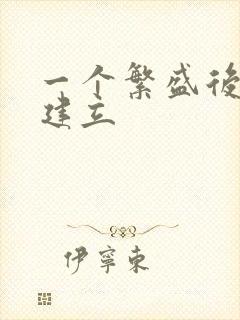 一个繁盛後
建立
伊寧東